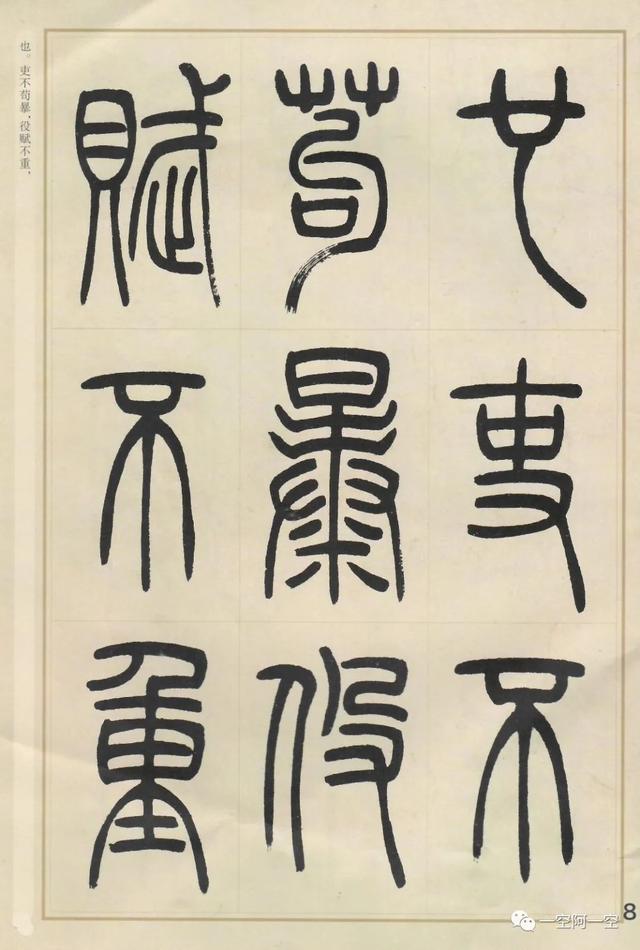 也吏不
苟暴役
賦不重
也。吏不苟暴，役赋不重，
8
一空阿一空